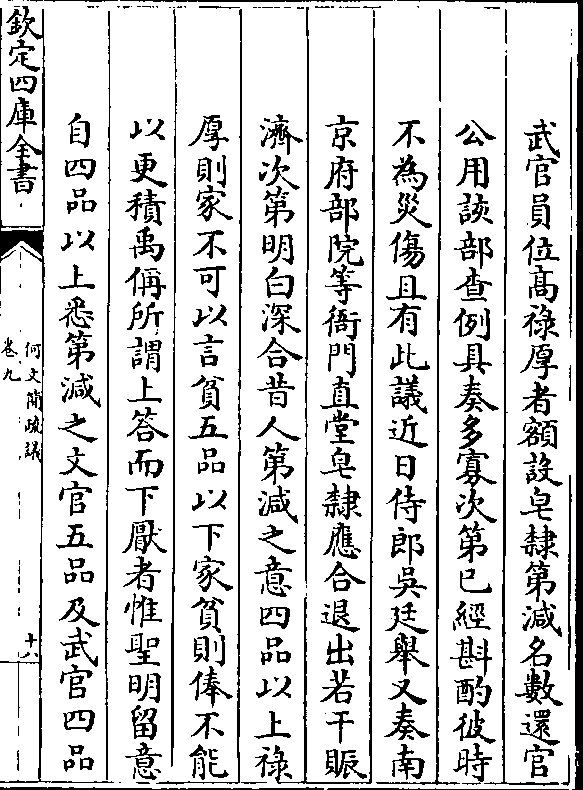 武官員位高祿厚者額設皂隸第減名數還官
公用該部查例具奏多寡次第已經斟酌彼時
不為災傷且有此議近日侍郎吳廷舉又奏南
京府部院等衙門直堂皂隸應合退出若干賑
濟次第明白深合昔人第減之意四品以上祿
厚則家不可以言貧五品以下家貧則俸不能
以更積禹偁所謂上答而下厭者惟聖明留意
自四品以上悉第減之文官五品及武官四品
欽定四庫全書
何文簡疏議
卷九
十六